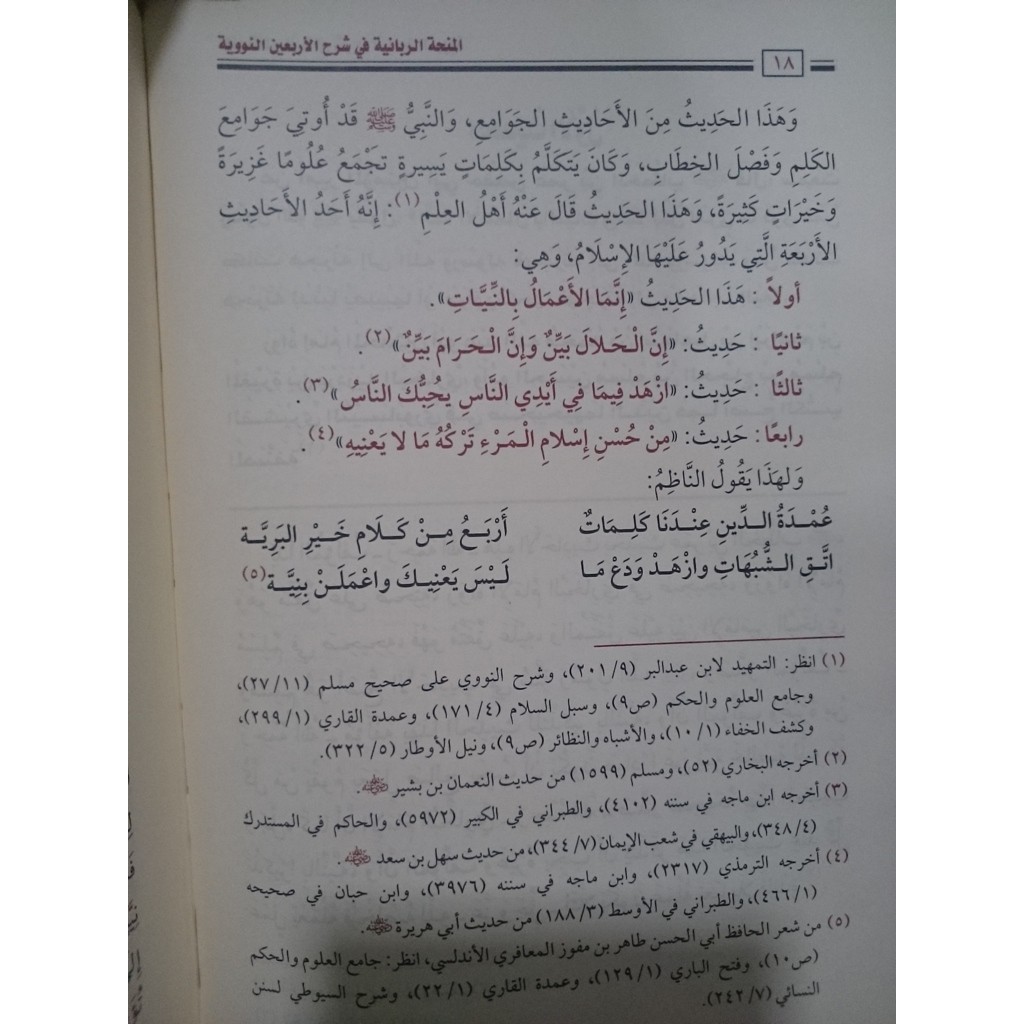 المنحة الربانية في شرح الأربعين النووية
١٨
وَهَذَا الحَدِيثُ مِنَ الأَحَادِيثِ الجَوَامِعِ، وَالنَّبِيُّ ﷺ قَدْ أُوتِيَ جَوَامِعَ
الكَلِمِ وَفَصْلَ الخِطَابِ، وَكَانَ يَتَكَلَّمُ بِكَلِمَاتٍ يَسِيرةٍ تَجْمَعُ عُلُومًا غَزِيرَةً
وَخَيْرَاتٍ كَثِيرَةً، وَهَذَا الحَدِيثُ قَالَ عَنْهُ أَهْلُ العِلْمِ(١): إِنَّهُ أَحَدُ الأَحَادِيثِ
الأَرْبَعَةِ الَّتِي يَدُورُ عَلَيْهَا الإِسْلَامُ، وَهِيَ:
أولاً : هَذَا الحَدِيثُ «إِنَّمَا الأَعْمَالُ بِالنِّيَّاتِ».
ثانيًا : حَدِيثُ: «إِنَّ الْحَلالَ بَيِّنٌ وَإِنَّ الْحَرَامَ بَيِّنٌ»(٢).
ثالثًا : حَدِيثُ: «ازْهَدْ فِيمَا فِي أَيْدِي النَّاسِ يُحِبُّكَ النَّاسُ»(٣).
رابعًا: حَدِيثُ: «مِنْ حُسْنِ إِسْلامِ الْمَرْءِ تَرْكُهُ مَا لا يَعْنِيهِ»(٤).
وَلهَذَا يَقُولُ النَّاظِمُ:
عُمْدَةُ الدِّينِ عِنْدَنَا كَلِمَاتٌ أَرْبَعُ مِنْ كَلَامِ خَيْرِ البَرِيَّة
اتَّقِ الشُّبُهَاتِ وازْهَدْ وَدَعْ مَا لَيْسَ يَعْنِيكَ واعْمَلَنْ بِنِيَّة(٥)
(١) انظر: التمهيد لابن عبدالبر (٩/ ٢٠١)، وشرح النووي على صحيح مسلم (١١/ ٢٧)،
وجامع العلوم والحكم (ص٩)، وسبل السلام (٤/ ١٧١)، وعمدة القاري (١/ ٢٩٩)،
وكشف الخفاء (١/ ١٠)، والأشباه والنظائر (ص٩)، ونيل الأوطار (٥/ ٣٢٢).
(٢) أخرجه البخاري (٥٢)، ومسلم (١٥٩٩) من حديث النعمان بن بشير ﵁.
(٣) أخرجه ابن ماجه في سننه (٤١٠٢)، والطبراني في الكبير (٥٩٧٢)، والحاكم في المستدرك
(٤/ ٣٤٨)، والبيهقي في شعب الإيمان (٧/ ٣٤٤)، من حديث سهل بن سعد ﵁.
(٤) أخرجه الترمذي (٢٣١٧)، وابن ماجه في سننه (٣٩٧٦)، وابن حبان في صحيحه
(١/ ٤٦٦)، والطبراني في الأوسط (٣/ ١٨٨) من حديث أبي هريرة ﵁.
(٥) من شعر الحافظ أبي الحسن طاهر بن مفوز المعافري الأندلسي، انظر: جامع العلوم والحكم
(ص١٠)، وفتح الباري (١/ ١٢٩)، وعمدة القاري (١/ ٢٢)، وشرح السيوطي لسنن
النسائي (٧/ ٢٤٢).